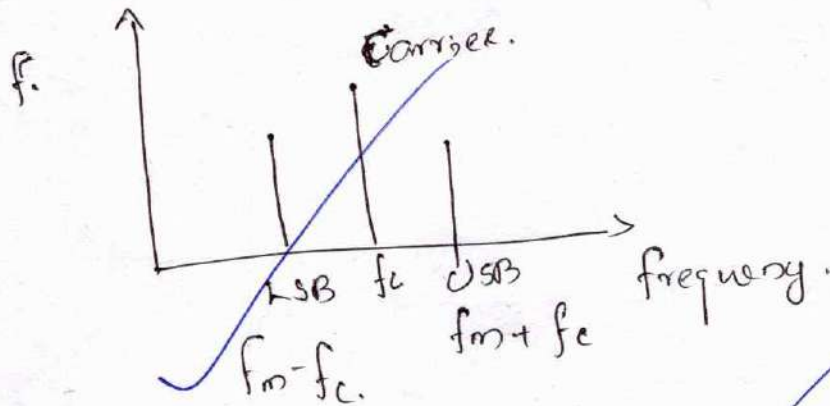 Carrier.
f.
LSB fc USB frequency.
fm - fc. fm + fc